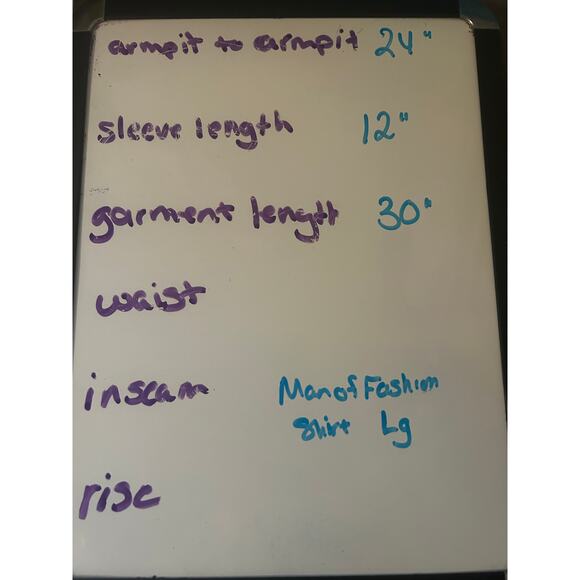 armpit to armpit 24"
sleeve length 12"
garment length 30"
waist
inseam
Man of Fashion
Shirt Lg
rise